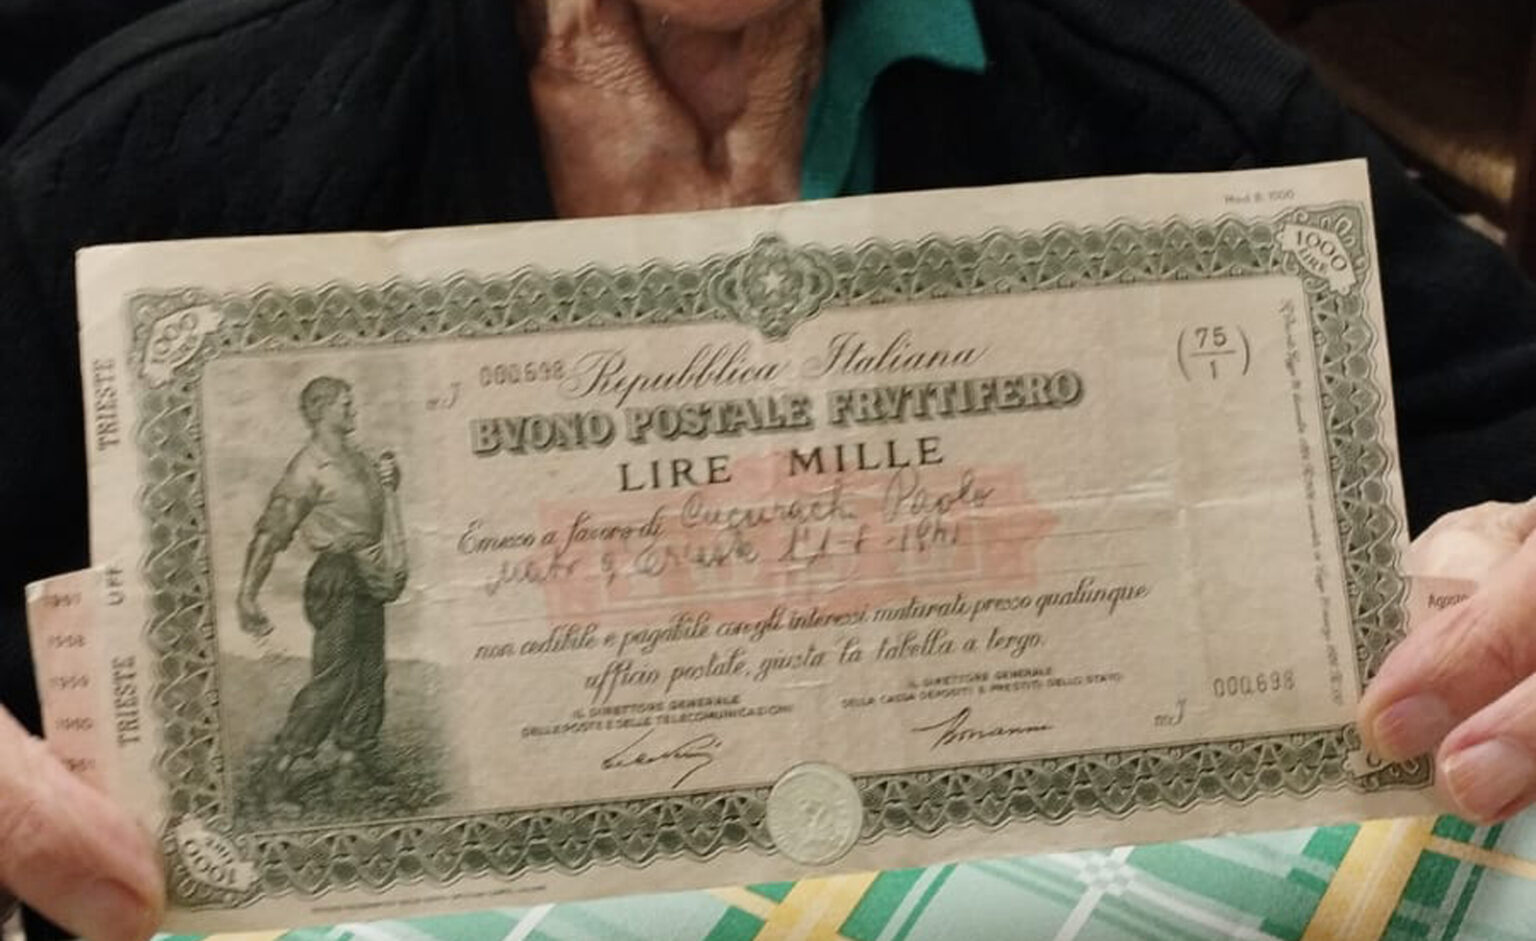 Mod. B. 1000
1000
LIRE
1000
LIRE
( 75 / 1 )
N. J 000,698 Repubblica Italiana
BVONO POSTALE FRVTTIFERO
LIRE MILLE
Emesso a favore di Cucurachi Paolo
nato a Trieste
non cedibile e pagabile con gli interessi maturati presso qualunque
ufficio postale, giusta la tabella a tergo.
IL DIRETTORE GENERALE
DELLE POSTE E DELLE TELECOMUNICAZIONI
IL DIRETTORE GENERALE
DELLA CASSA DEPOSITI E PRESTITI DELLO STATO
N. J 000,698
1000
LIRE
TRIESTE
UFF
TRIESTE
1958
1959
1960
Agosto